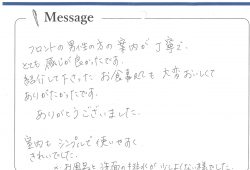 Message
フロントの男性の方の案内が丁寧で、
とても感じが良かったです。
紹介して下さったお食事処も大変おいしくて
ありがたかったです。
ありがとうございました。
室内も シンプルで使いやすく
きれいでした。
お風呂と洗面の排水が少しよくない様でした。